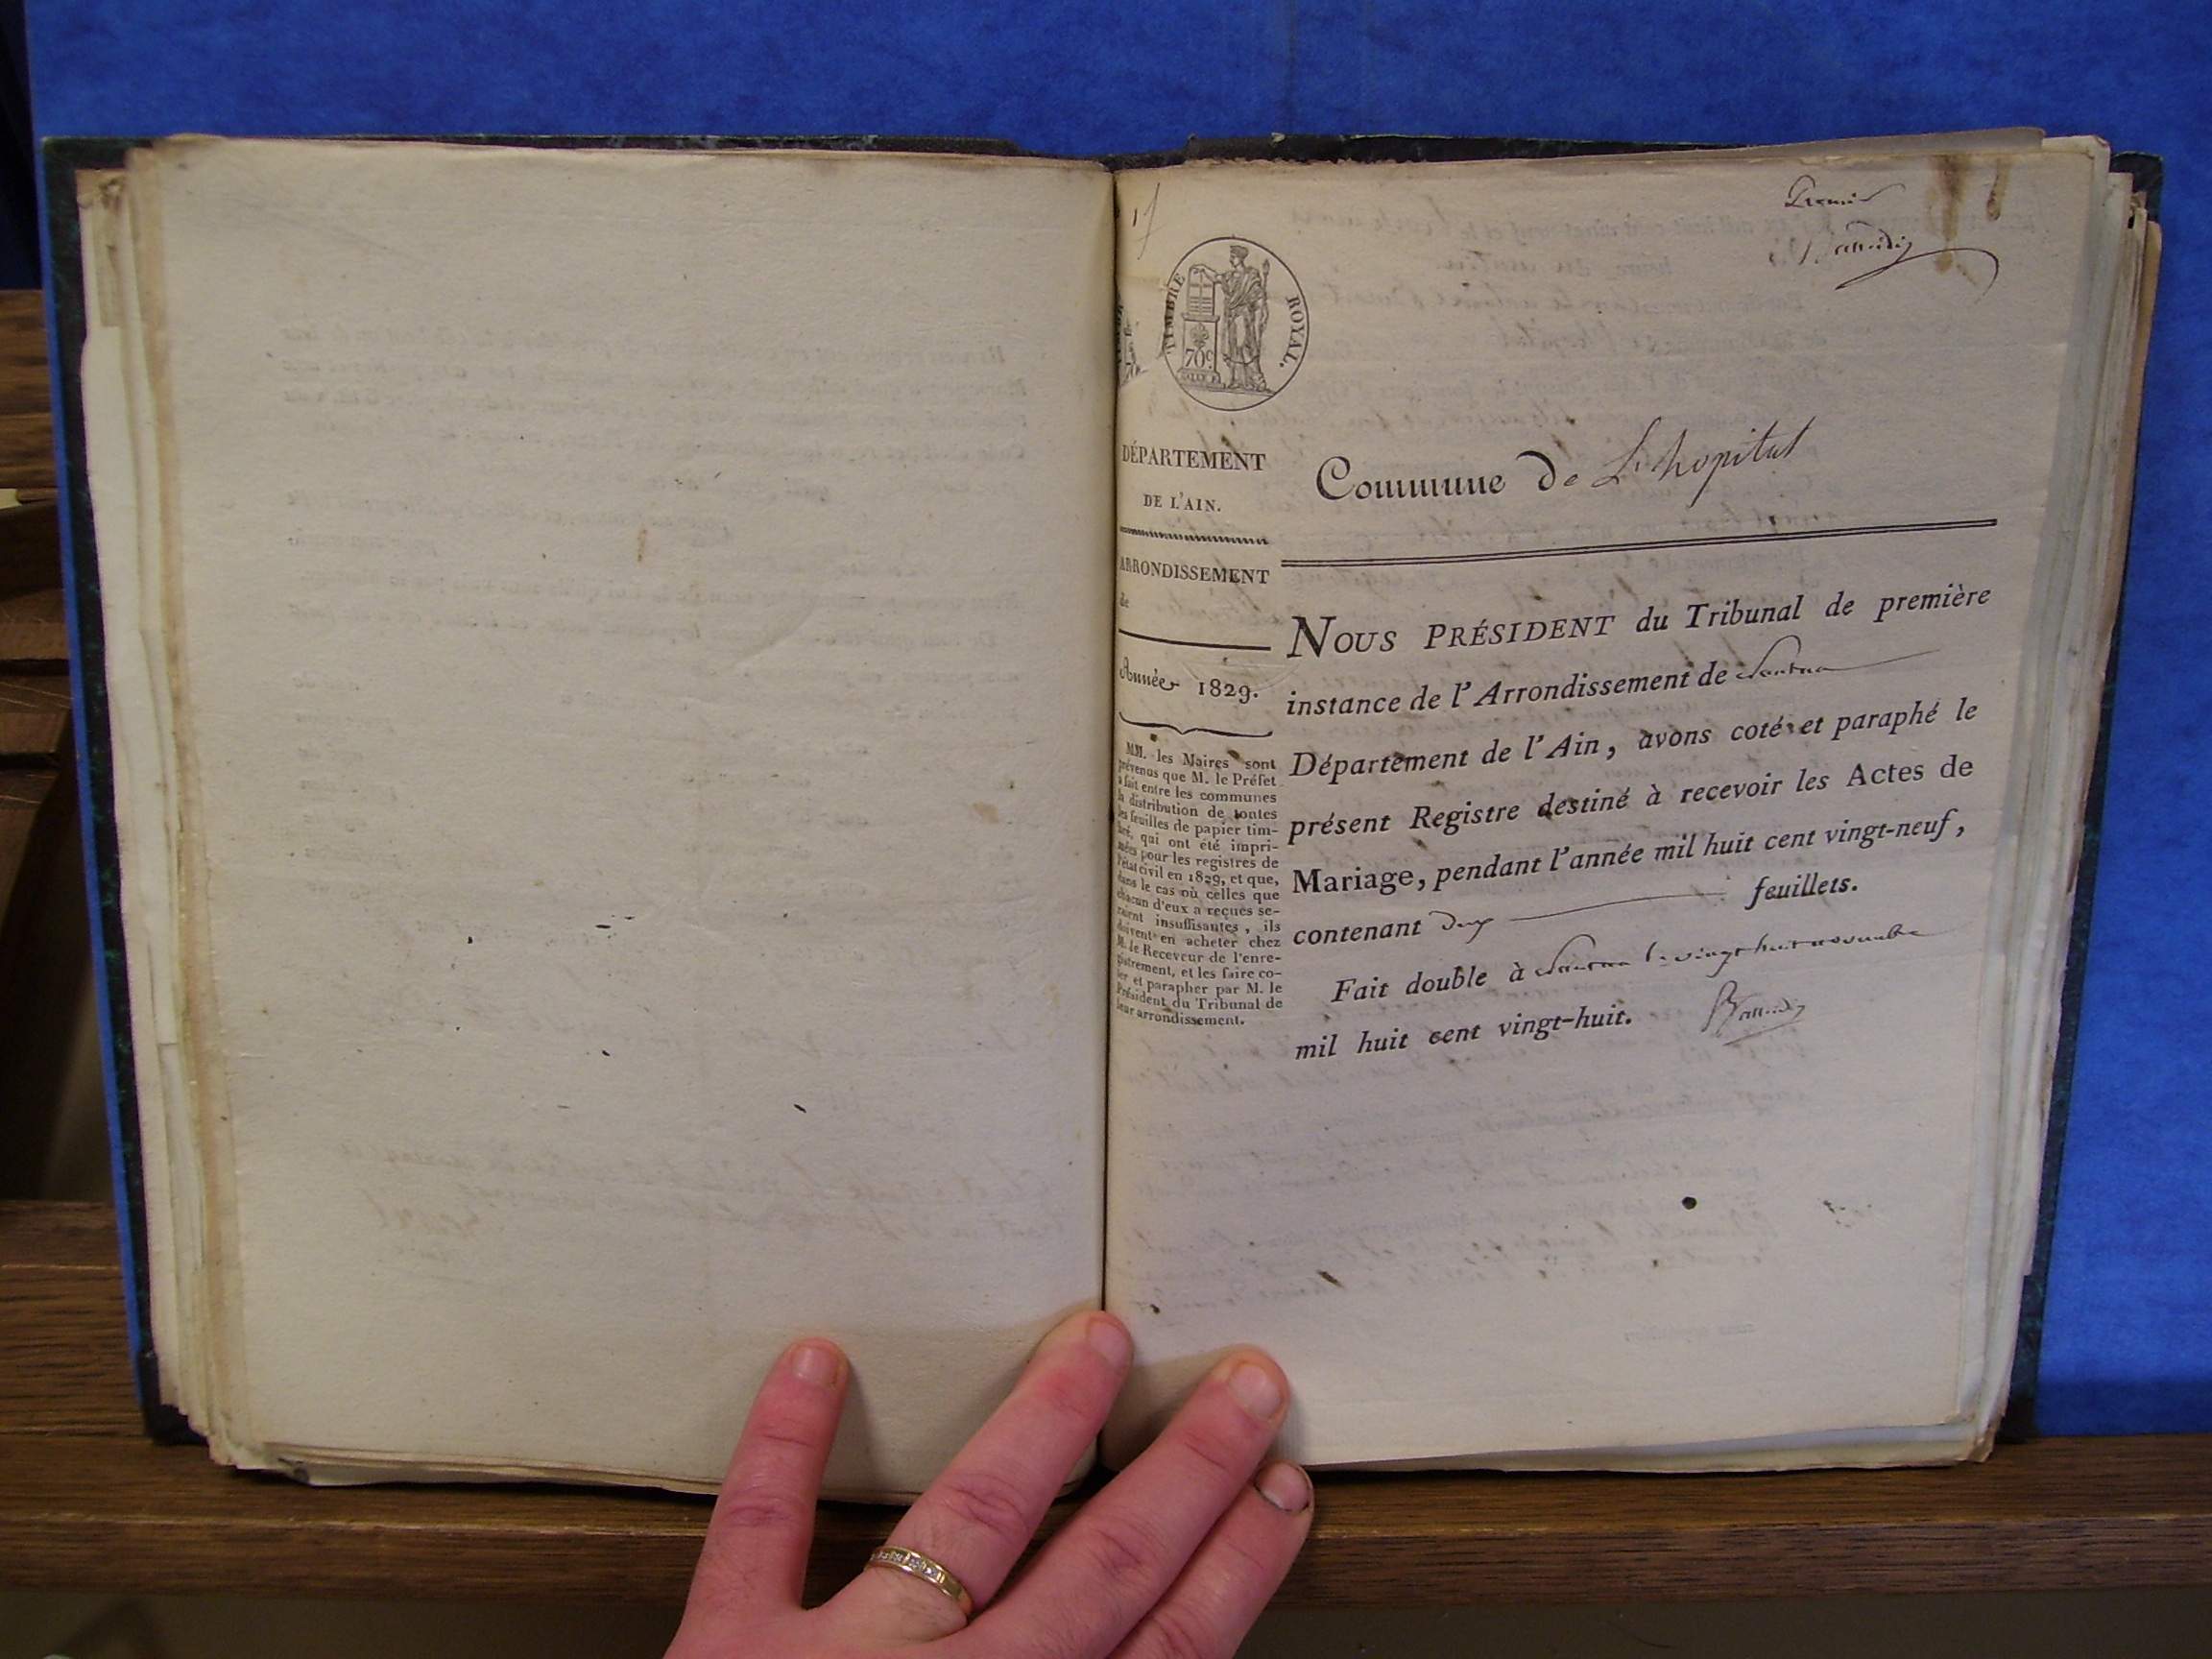 17
Premier
TIMBRE ROYAL.
70c
DÉPARTEMENT
DE L'AIN.
ARRONDISSEMENT
de
Année 1829.
MM. les Maires sont
prévenus que M. le Préfet
a fait entre les communes
la distribution de toutes
les feuilles de papier tim-
bré, qui ont été impri-
mées pour les registres de
l'état civil en 1829, et que,
dans le cas où celles que
chacun d'eux a reçues se-
raient insuffisantes, ils
doivent en acheter chez
M. le Receveur de l'enre-
gistrement, et les faire co-
ter et parapher par M. le
Président du Tribunal de
leur arrondissement.
Commune de L'hopital
NOUS PRÉSIDENT du Tribunal de première
instance de l'Arrondissement de Nantua
Département de l'Ain, avons coté et paraphé le
présent Registre destiné à recevoir les Actes de
Mariage, pendant l'année mil huit cent vingt-neuf,
contenant deux feuillets.
Fait double à Nantua le vingt huit novembre
mil huit cent vingt-huit.